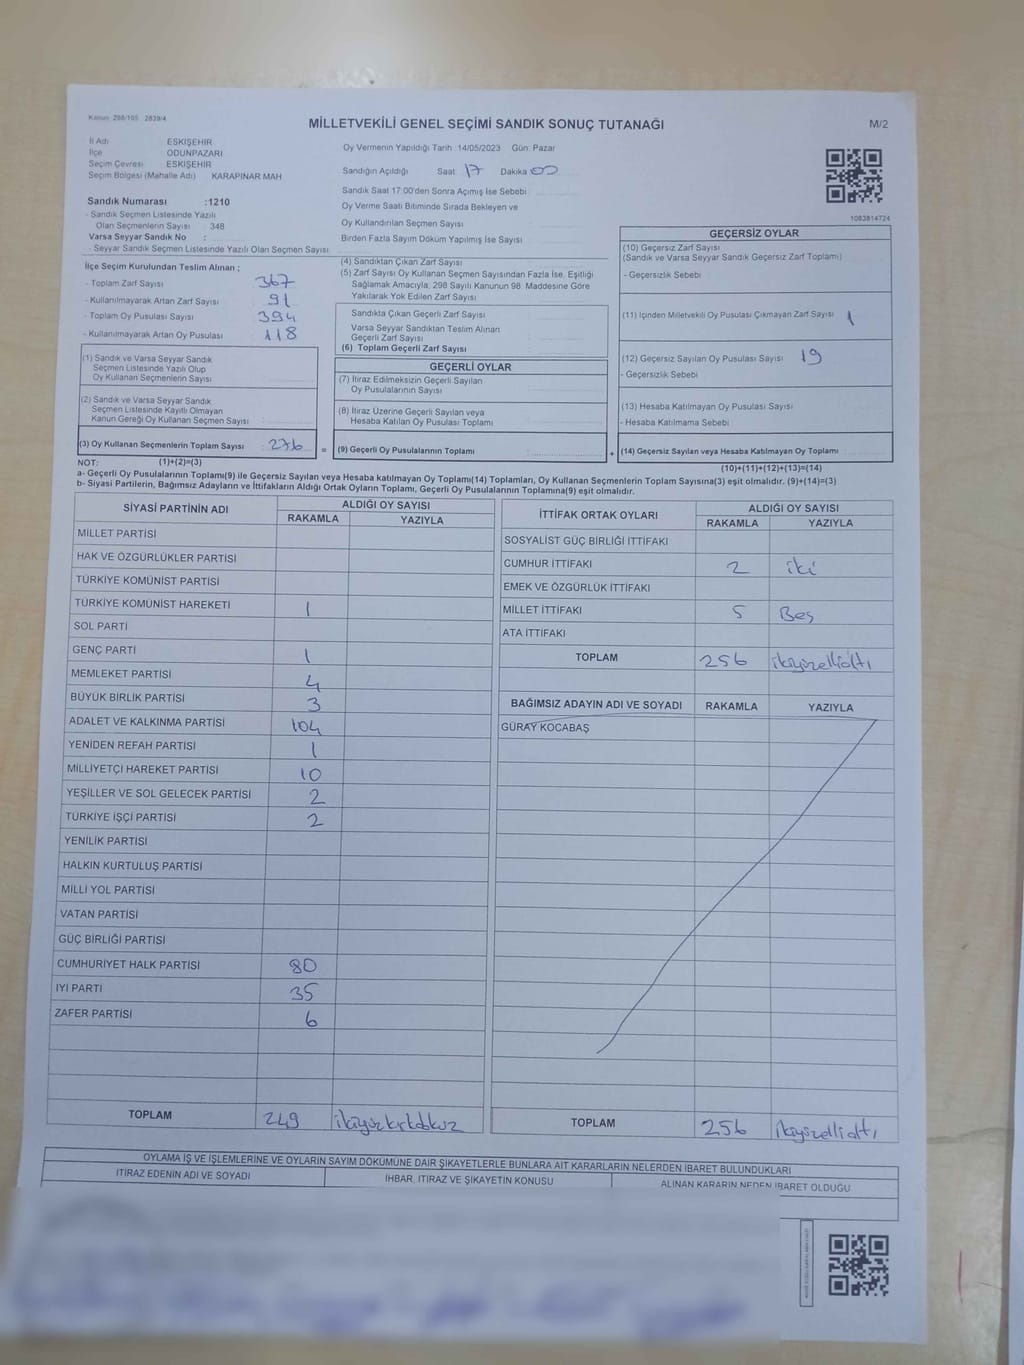 Kanun: 298/105 2839/4
MİLLETVEKİLİ GENEL SEÇİMİ SANDIK SONUÇ TUTANAĞI
M/2
İl Adı : ESKİŞEHİR
İlçe : ODUNPAZARI
Seçim Çevresi : ESKİŞEHİR
Seçim Bölgesi (Mahalle Adı) KARAPINAR MAH
Oy Vermenin Yapıldığı Tarih :14/05/2023 Gün: Pazar
Sandığın Açıldığı Saat: 17 Dakika 00
Sandık Saat 17:00'den Sonra Açımış İse Sebebi :
Oy Verme Saati Bitiminde Sırada Bekleyen ve
Oy Kullandırılan Seçmen Sayısı :
Birden Fazla Sayım Döküm Yapılmış İse Sayısı :
Sandık Numarası :1210
- Sandık Seçmen Listesinde Yazılı
Olan Seçmenlerin Sayısı : 348
Varsa Seyyar Sandık No :
- Seyyar Sandık Seçmen Listesinde Yazılı Olan Seçmen Sayısı :
1083814724
İlçe Seçim Kurulundan Teslim Alınan ;
- Toplam Zarf Sayısı : 367
- Kullanılmayarak Artan Zarf Sayısı : 91
- Toplam Oy Pusulası Sayısı : 394
- Kullanılmayarak Artan Oy Pusulası : 118
(1) Sandık ve Varsa Seyyar Sandık
Seçmen Listesinde Yazılı Olup
Oy Kullanan Seçmenlerin Sayısı :
(2) Sandık ve Varsa Seyyar Sandık
Seçmen Listesinde Kayıtlı Olmayan
Kanun Gereği Oy Kullanan Seçmen Sayısı :
(3) Oy Kullanan Seçmenlerin Toplam Sayısı : 276
(1)+(2)=(3)
(4) Sandıktan Çıkan Zarf Sayısı :
(5) Zarf Sayısı Oy Kullanan Seçmen Sayısından Fazla İse, Eşitliği
Sağlamak Amacıyla, 298 Sayılı Kanunun 98. Maddesine Göre
Yakılarak Yok Edilen Zarf Sayısı :
Sandıkta Çıkan Geçerli Zarf Sayısı :
Varsa Seyyar Sandıktan Teslim Alınan
Geçerli Zarf Sayısı :
(6) Toplam Geçerli Zarf Sayısı :
GEÇERLİ OYLAR
(7) İtiraz Edilmeksizin Geçerli Sayılan
Oy Pusulalarının Sayısı :
(8) İtiraz Üzerine Geçerli Sayılan veya
Hesaba Katılan Oy Pusulası Toplamı :
= (9) Geçerli Oy Pusulalarının Toplamı :
GEÇERSİZ OYLAR
(10) Geçersiz Zarf Sayısı
(Sandık ve Varsa Seyyar Sandık Geçersiz Zarf Toplamı)
- Geçersizlik Sebebi :
(11) İçinden Milletvekili Oy Pusulası Çıkmayan Zarf Sayısı : 1
(12) Geçersiz Sayılan Oy Pusulası Sayısı : 19
- Geçersizlik Sebebi :
(13) Hesaba Katılmayan Oy Pusulası Sayısı :
- Hesaba Katılmama Sebebi :
+ (14) Geçersiz Sayılan veya Hesaba Katılmayan Oy Toplamı :
(10)+(11)+(12)+(13)=(14)
NOT:
a- Geçerli Oy Pusulalarının Toplamı(9) ile Geçersiz Sayılan veya Hesaba katılmayan Oy Toplamı(14) Toplamları, Oy Kullanan Seçmenlerin Toplam Sayısına(3) eşit olmalıdır. (9)+(14)=(3)
b- Siyasi Partilerin, Bağımsız Adayların ve İttifakların Aldığı Ortak Oyların Toplamı, Geçerli Oy Pusulalarının Toplamına(9) eşit olmalıdır.
SİYASİ PARTİNİN ADI ALDIĞI OY SAYISI
RAKAMLA YAZIYLA
MİLLET PARTİSİ
HAK VE ÖZGÜRLÜKLER PARTİSİ
TÜRKİYE KOMÜNİST PARTİSİ
TÜRKİYE KOMÜNİST HAREKETİ 1
SOL PARTİ
GENÇ PARTİ 1
MEMLEKET PARTİSİ 4
BÜYÜK BİRLİK PARTİSİ 3
ADALET VE KALKINMA PARTİSİ 104
YENİDEN REFAH PARTİSİ 1
MİLLİYETÇİ HAREKET PARTİSİ 10
YEŞİLLER VE SOL GELECEK PARTİSİ 2
TÜRKİYE İŞÇİ PARTİSİ 2
YENİLİK PARTİSİ
HALKIN KURTULUŞ PARTİSİ
MİLLİ YOL PARTİSİ
VATAN PARTİSİ
GÜÇ BİRLİĞİ PARTİSİ
CUMHURİYET HALK PARTİSİ 80
İYİ PARTİ 35
ZAFER PARTİSİ 6
TOPLAM 249 ikiyüzkırkdokuz
İTTİFAK ORTAK OYLARI ALDIĞI OY SAYISI
RAKAMLA YAZIYLA
SOSYALİST GÜÇ BİRLİĞİ İTTİFAKI
CUMHUR İTTİFAKI 2 iki
EMEK VE ÖZGÜRLÜK İTTİFAKI
MİLLET İTTİFAKI 5 Beş
ATA İTTİFAKI
TOPLAM 256 ikiyüzellialtı
BAĞIMSIZ ADAYIN ADI VE SOYADI RAKAMLA YAZIYLA
GÜRAY KOCABAŞ
TOPLAM 256 ikiyüzellialtı
OYLAMA İŞ VE İŞLEMLERİNE VE OYLARIN SAYIM DÖKÜMÜNE DAİR ŞİKAYETLERLE BUNLARA AİT KARARLARIN NELERDEN İBARET BULUNDUKLARI
İTİRAZ EDENİN ADI VE SOYADI İHBAR, İTİRAZ VE ŞİKAYETİN KONUSU ALINAN KARARIN NEDEN İBARET OLDUĞU